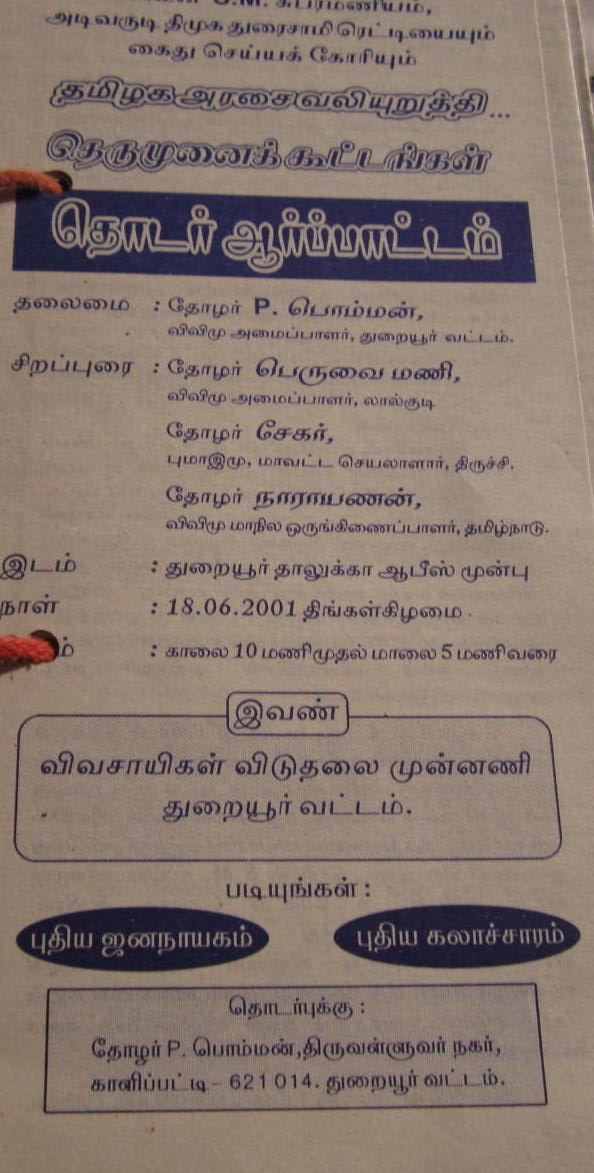 G.M. சுப்ரமணியம்,
அடிவருடி திமுக துரைசாமி ரெட்டியையும்
கைது செய்யக் கோரியும்
தமிழக அரசை வலியுறுத்தி...
தெருமுனைக் கூட்டங்கள்
தொடர் ஆர்ப்பாட்டம்
தலைமை : தோழர் P. பொம்மன்,
விவிமு அமைப்பாளர், துறையூர் வட்டம்.
சிறப்புரை : தோழர் பெருவை மணி,
விவிமு அமைப்பாளர், லால்குடி
தோழர் சேகர்,
புமாஇமு, மாவட்ட செயலாளார், திருச்சி.
தோழர் நாராயணன்,
விவிமு மாநில ஒருங்கிணைப்பாளர், தமிழ்நாடு.
இடம் : துறையூர் தாலுக்கா ஆபீஸ் முன்பு
நாள் : 18.06.2001 திங்கள்கிழமை
: காலை 10 மணிமுதல் மாலை 5 மணிவரை
இவண்
விவசாயிகள் விடுதலை முன்னணி
துறையூர் வட்டம்.
படியுங்கள் :
புதிய ஜனநாயகம் புதிய கலாச்சாரம்
தொடர்புக்கு :
தோழர் P. பொம்மன்,திருவள்ளுவர் நகர்,
காளிப்பட்டி - 621 014. துறையூர் வட்டம்.